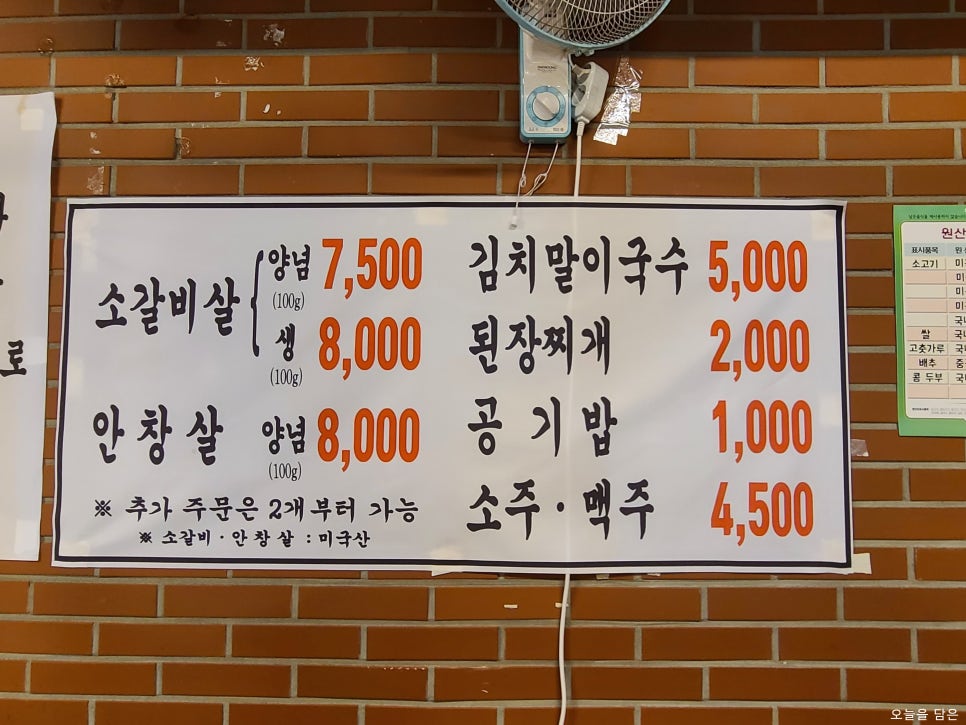 소갈비살
양념 7,500
(100g)
생 8,000
(100g)
안창살 양념 8,000
(100g)
※ 추가 주문은 2개부터 가능
※ 소갈비·안창살 : 미국산
김치말이국수 5,000
된장찌개 2,000
공기밥 1,000
소주·맥주 4,500
로
원산
표시품목 원
소고기 미
미
미
국
쌀 국
고춧가루 국
배추 중
콩 두부 국
오늘을 담은